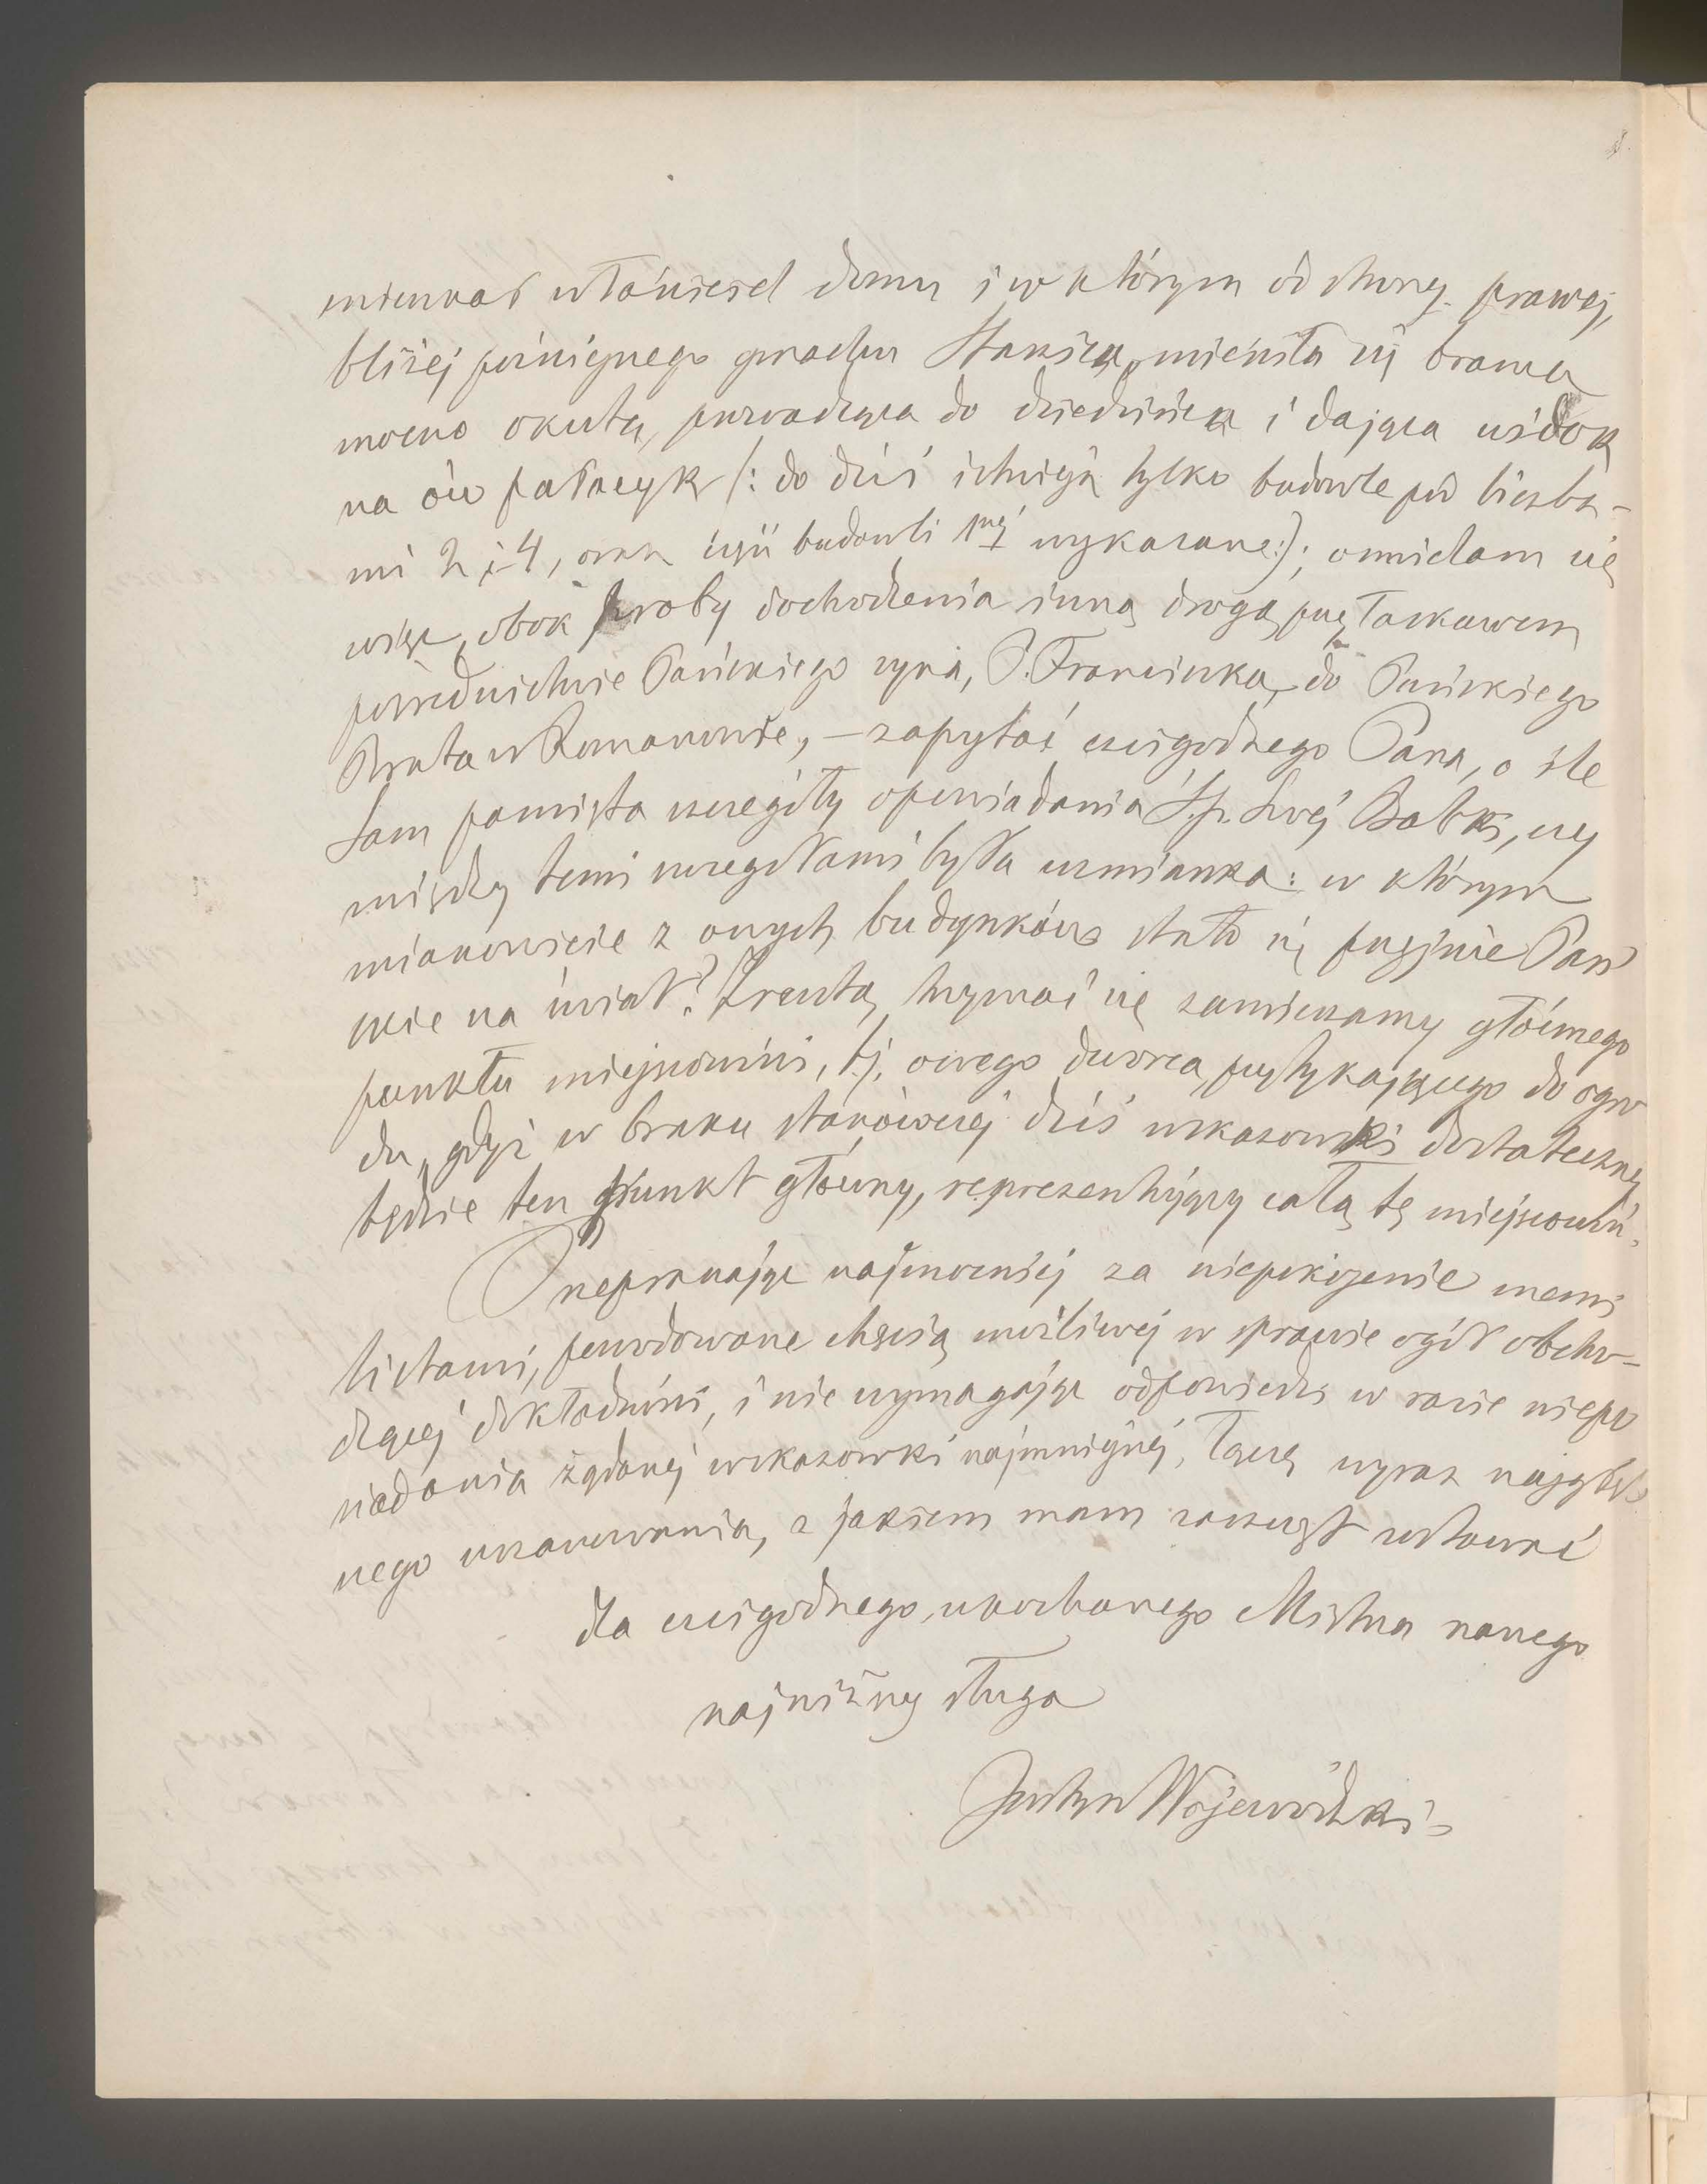 mieszkał właściciel domu i w którym od strony prawej,
bliżej późniejszego gmachu Staszica, mieściła się brama
mocno okuta, prowadząca do dziedzińca i dająca widok
na ów pałacyk (: do dziś istnieją tylko budowle pod liczba-
mi 2 i 4, oraz część budowli wykazane :); ośmielam się
więc, obok proby dochodzenia inną drogą, przy łaskawem
pośrednictwie Pańskiego syna, P. Franciszka, do Pańskiego
Brata w Romanowie, – zapytać czcigodnego Pana, o ile
Sam pamięta szczegóły opowiadania Ś.p. Swej Babki, czy
między temi szczegółami była wzmianka: w którym
mianowicie z owych budynków stało się przyjście Pań
skie na świat? Zresztą, trzymać się zamierzamy głównego
punktu miejscowości, tj. owego dworca, przytykającego do ogro
du, gdyż w braku stanowczej dziś wskazówki dostateczny
będzie ten punkt główny, reprezentujący całą tę miejscowość.
Przepraszając najmocniej za niepokojenie memi
listami, powodowane chęcią możliwej w sprawie ogół obcho-
dzącej dokładności, i nie wymagając odpowiedzi w razie niepo
siadania żądanej wskazówki najmniejszej, łączę wyraz najgłęb-
szego uszanowania, z jakiem mam zaszczyt zostawać
dla czcigodnego, ukochanego Mistrza naszego
najniższy sługa
Justyn Wojewódzki